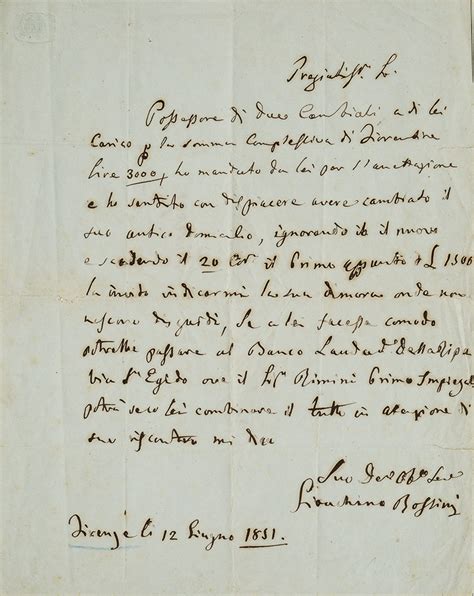 Pregiatis. S.
Possessore di due Cambiali a di lei
Carico p la somma Complessiva di Fiorentine
lire 3000, ho mandato da lei per l'accettazione
e ho sentito con dispiacere avere cambiato il
suo antico domicilio, ignorando il nuovo
e scadendo il 20 Cor. il primo appunto di £ 1500
la invito indicarmi la sua dimora onde non
nascano disguidi, Se a lei facesse comodo
potrebbe passare al Banco
via S. Egidio ove il Sig. Rimini Primo Impiegato
potrà seco lei combinare il tutto in attenzione di
suo riscontro mi dico
Suo Dev
Gioachino Rossini
Firenze li 12 Giugno 1851.